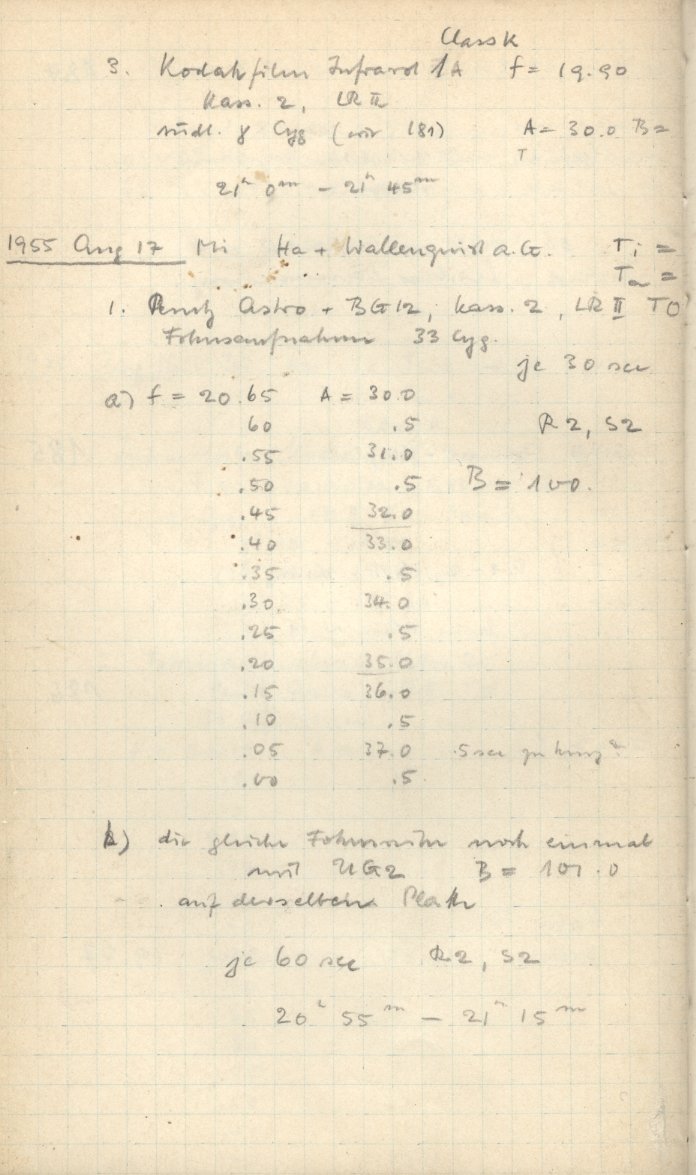 Class K
3. Kodakfilm Infrarot 1A f = 19.90
Kass. 2, LR II
südl. γ Cyg (wie 181) A = 30.0 B =
T
21h 0m – 21h 45m
1955 Aug 17 Mi Ha + Wallenquist a.G. Ti =
Ta =
1. Perutz Astro + BG12, Kass. 2, LR II TO
Fokusaufnahmen 33 Cyg.
je 30 sec
a) f = 20.65 A = 30.0
60 .5 R2, S2
.55 31.0
.50 .5 B = 100.
.45 32.0
.40 33.0
.35 .5
.30 34.0
.25 .5
.20 35.0
.15 36.0
.10 .5
.05 37.0 5 sec zu kurz?
.00 .5
b) die gleiche Fokusreihe noch einmal
mit UG2 B = 101.0
auf derselben Platte
je 60 sec R2, S2
20h 55m – 21h 15m